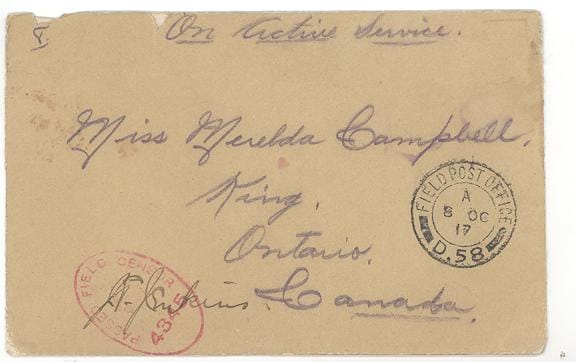 I
On Active Service.
Miss Merelda Campbell,
King,
Ontario,
Canada.
FIELD POST OFFICE
A
8 OC
17
D.58
PASSED FIELD CENSOR
Jenkins